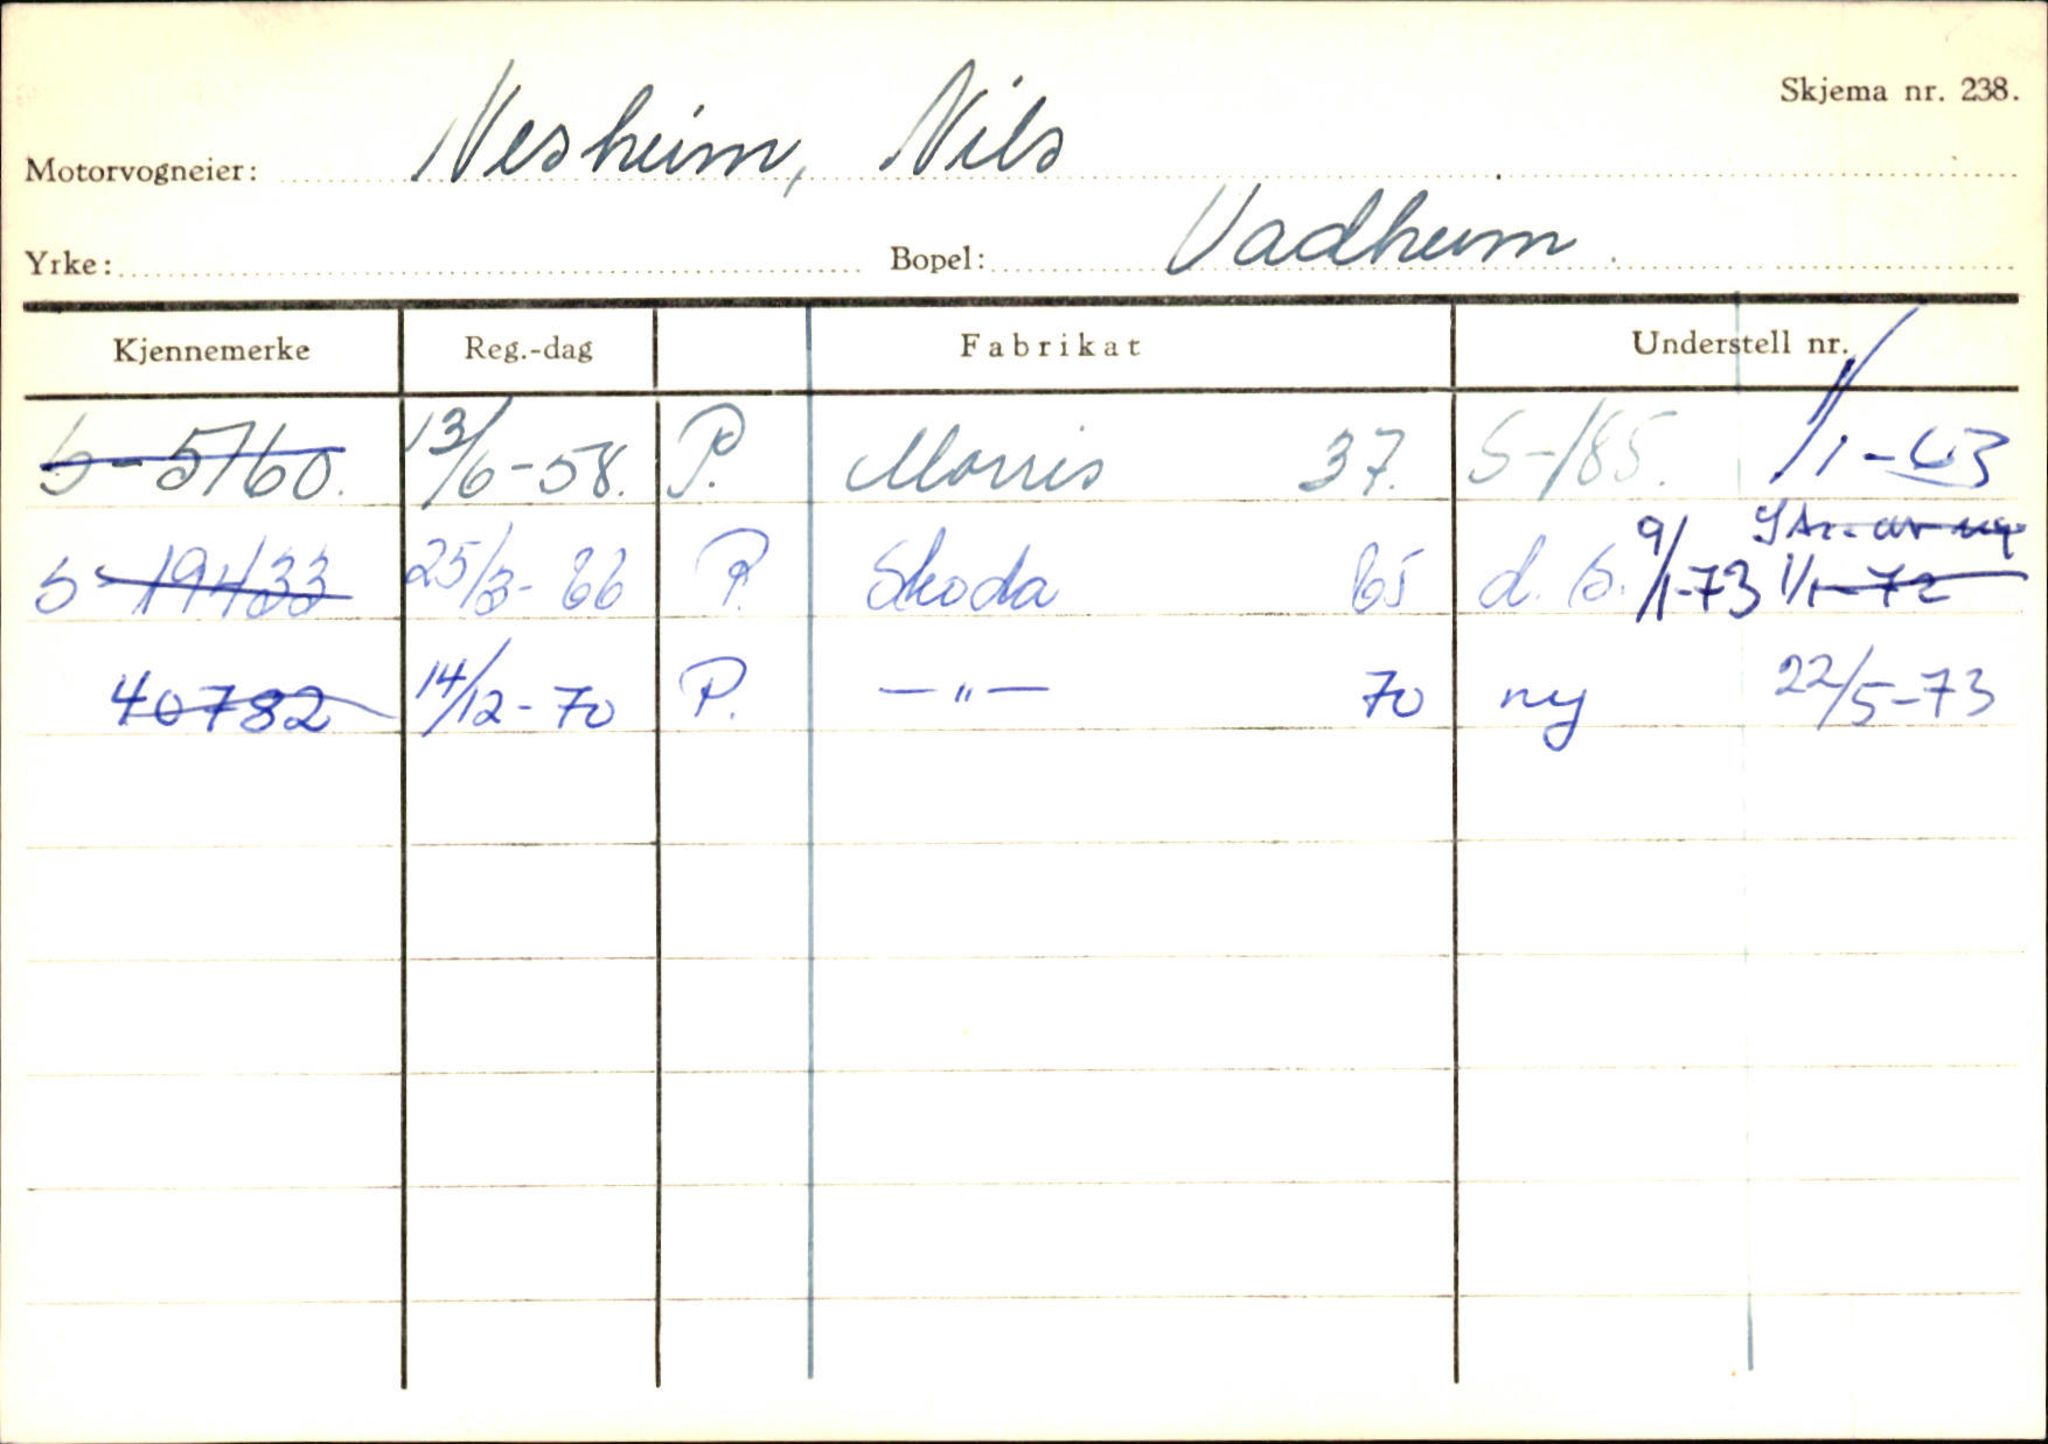 Skjema nr. 238.
Motorvogneier: Nesheim, Nils
Yrke: Bopel: Vadheim
Kjennemerke Reg.-dag Fabrikat Understell nr.
S-5760. 13/6-58. P. Morris 37. S-185. 1/1-63
S-19433 25/3-66 P. Skoda 65 d. S. 9/1-73 1/1-72
40782 14/12-70 P. —"— 70 ny 22/5-73